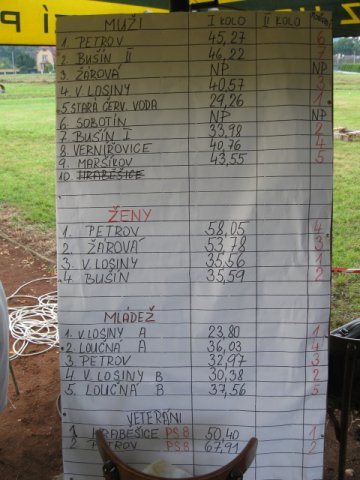 MUŽI I KOLO II KOLO
1. PETROV 45,27 6
2. BUŠÍN II 46,22 7
3 ŽÁROVÁ NP NP
4. V LOSINY 40,57 3
5. STARÁ ČERV. VODA 29,26 1
6. SOBOTÍN NP NP
7 BUŠÍN I 33,98 2
8 VERNÍŘOVICE 40,76 4
9. MARŠÍKOV 43,55 5
10 HRABĚŠICE
ŽENY
1. PETROV 58,05 4
2. ŽÁROVÁ 53,78 3
3. V LOSINY 35,56 1
4 BUŠÍN 35,59 2
MLÁDEŽ
1. V LOSINY A 23,80 1
2. LOUČNÁ A 36,03 4
3. PETROV 32,97 3
4 V LOSINY B 30,38 2
5. LOUČNÁ B 37,56 5
VETERÁNI
1 HRABĚŠICE PS8 50,40 1
2 PETROV PS8 67,91 2